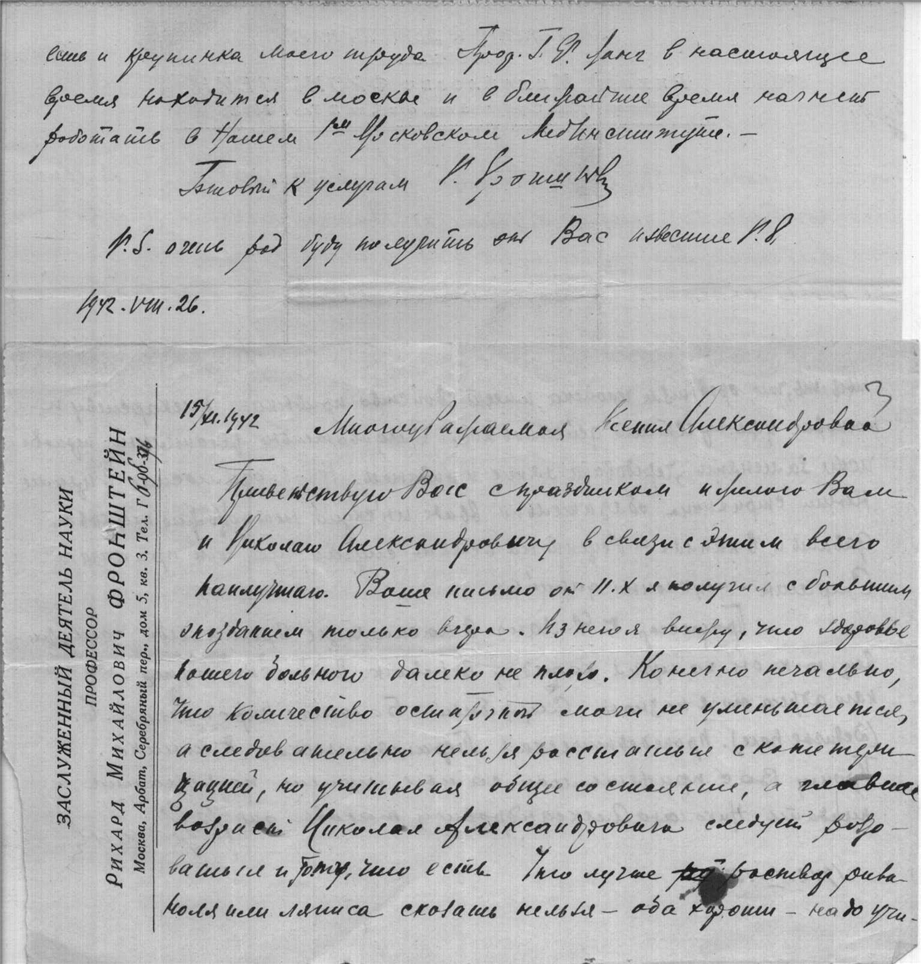 есть и крупинка моего труда. Проф. Г. Ф. Ланг в настоящее
время находится в Москве и в ближайшие время начнет
работать в Нашем 1ом Московском МедИнституте. –
Готовый к услугам Р. Фронштейн
P.S. очень рад буду получить от Вас известие Р. Ф.
1942. VIII. 26.
15/XI.1942
Многоуважаемая Ксения Александровна
Приветствую Вас с праздником и желаю Вам
и Николаю Александровичу в связи с этим всего
наилучшего. Ваше письмо от 11.X я получил с большим
опозданием только вчера. Из него я вижу, что здоровье
нашего больного далеко не плохо. Конечно печально,
что количество остаточной мочи не уменьшается,
а следовательно нельзя расстаться с катетери
зацией, но учитывая общее состояние, а главное
возраст Николая Александровича следует радо-
ваться и тому, что есть. Что лучше раствор рива-
ноля или ляписа сказать нельзя – оба хороши – надо учи-
ЗАСЛУЖЕННЫЙ ДЕЯТЕЛЬ НАУКИ
ПРОФЕССОР
РИХАРД МИХАЙЛОВИЧ ФРОНШТЕЙН
Москва, Арбат, Серебряный пер., дом 5, кв. 3, Тел.